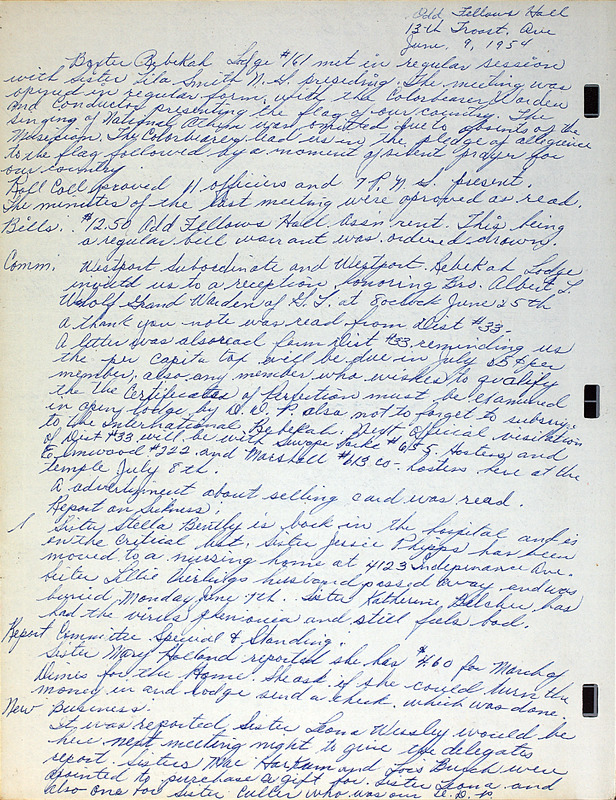 Odd Fellows Hall
13th Troost. Ave
June. 9, 1954
Baxter Rebekah Lodge #161 met in regular session
with Sister Lita Smith N. G. presiding. The meeting was
opened in regular form, with the Colorbearer, Warden
and Conductor presenting the flag of our country. The
singing of National was omitted due to of the
Musician. The Colorbearer lead us in the pledge of allegience
to the flag followed by a moment of silent prayer for
our country
Roll Call proved 11 officers and 7 P. N. G. present.
The minutes of the last meeting were aproved as read.
Bills. $12.50 Odd Fellows Hall Ass'n rent. This being
a regular bill warrant was ordered drawn.
Comm. Westport Subordinate and Westport Rebekah Lodge
us to a reception honoring Bro. Albert L.
Grand Warden of G. L. at 8 oclock June 25th
A thank you note was read from Dist #33-
A letter was also read from Dist #33 reminding us
the per capita tax will be due in July per
member, also any member who wishes to qualify
the Certificates of Perfection must be examined
in open lodge by D. D. P. also not to forget to
to the International Rebekah. Next Official visitation
of Dist #33 will be with Swope Parke #615 Hostess and
Elmwood #222 and Marshall #613 co-hostess here at the
temple July 8th.
A about selling card was read.
Report on Sickness:
Sister Stella Bently is back in the hospital and is
on the critical list. Sister Jessie Phipps has been
moved to a nursing home at 4123 Ave.
Sister Lillie husband passed away and was
buried Monday June 7th. Sister Katherine Belsher has
had the virus and still feels bad.
Report Committee Special & Standing.
Sister Mary Holland reported she has for March of
Dimes for the Home. She ask if she could turn the
money in and lodge send a check. which was done.
New Business:
It was reported Sister Leona Wessley would be
here next meeting night to give the delegates
report. Sisters Mae and Lois Busch were
to purchase a gift for Sister Leona and
also one for Sister Culler who was our